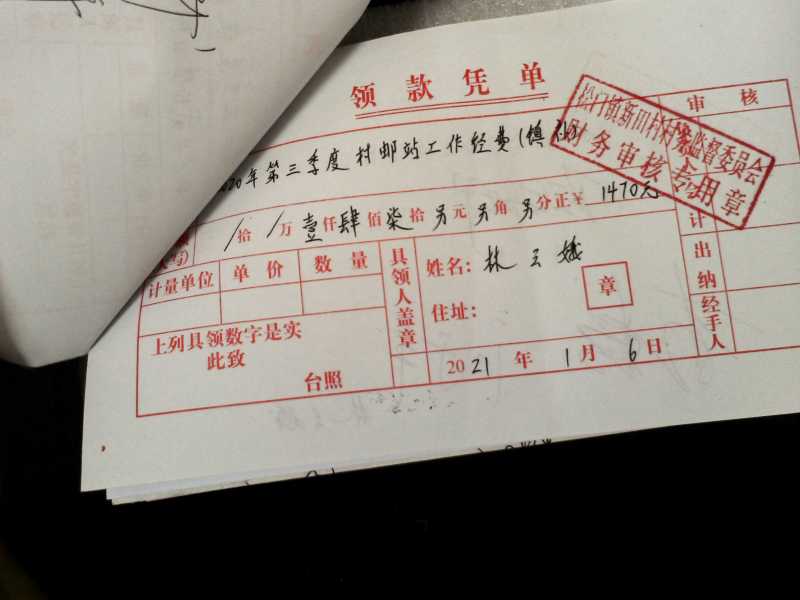 领款凭单
松门镇新田村村务监督委员会
财务审核专用章
审核
020年第三季度村邮站工作经费(镇补)
写)
/拾/万壹仟肆佰柒拾另元另角另分正¥1470元
计量单位 单价 数量
具领人盖章
姓名:林玉娥
住址:
章
计
出纳
经手人
上列具领数字是实
此致
台照
2021年1月6日